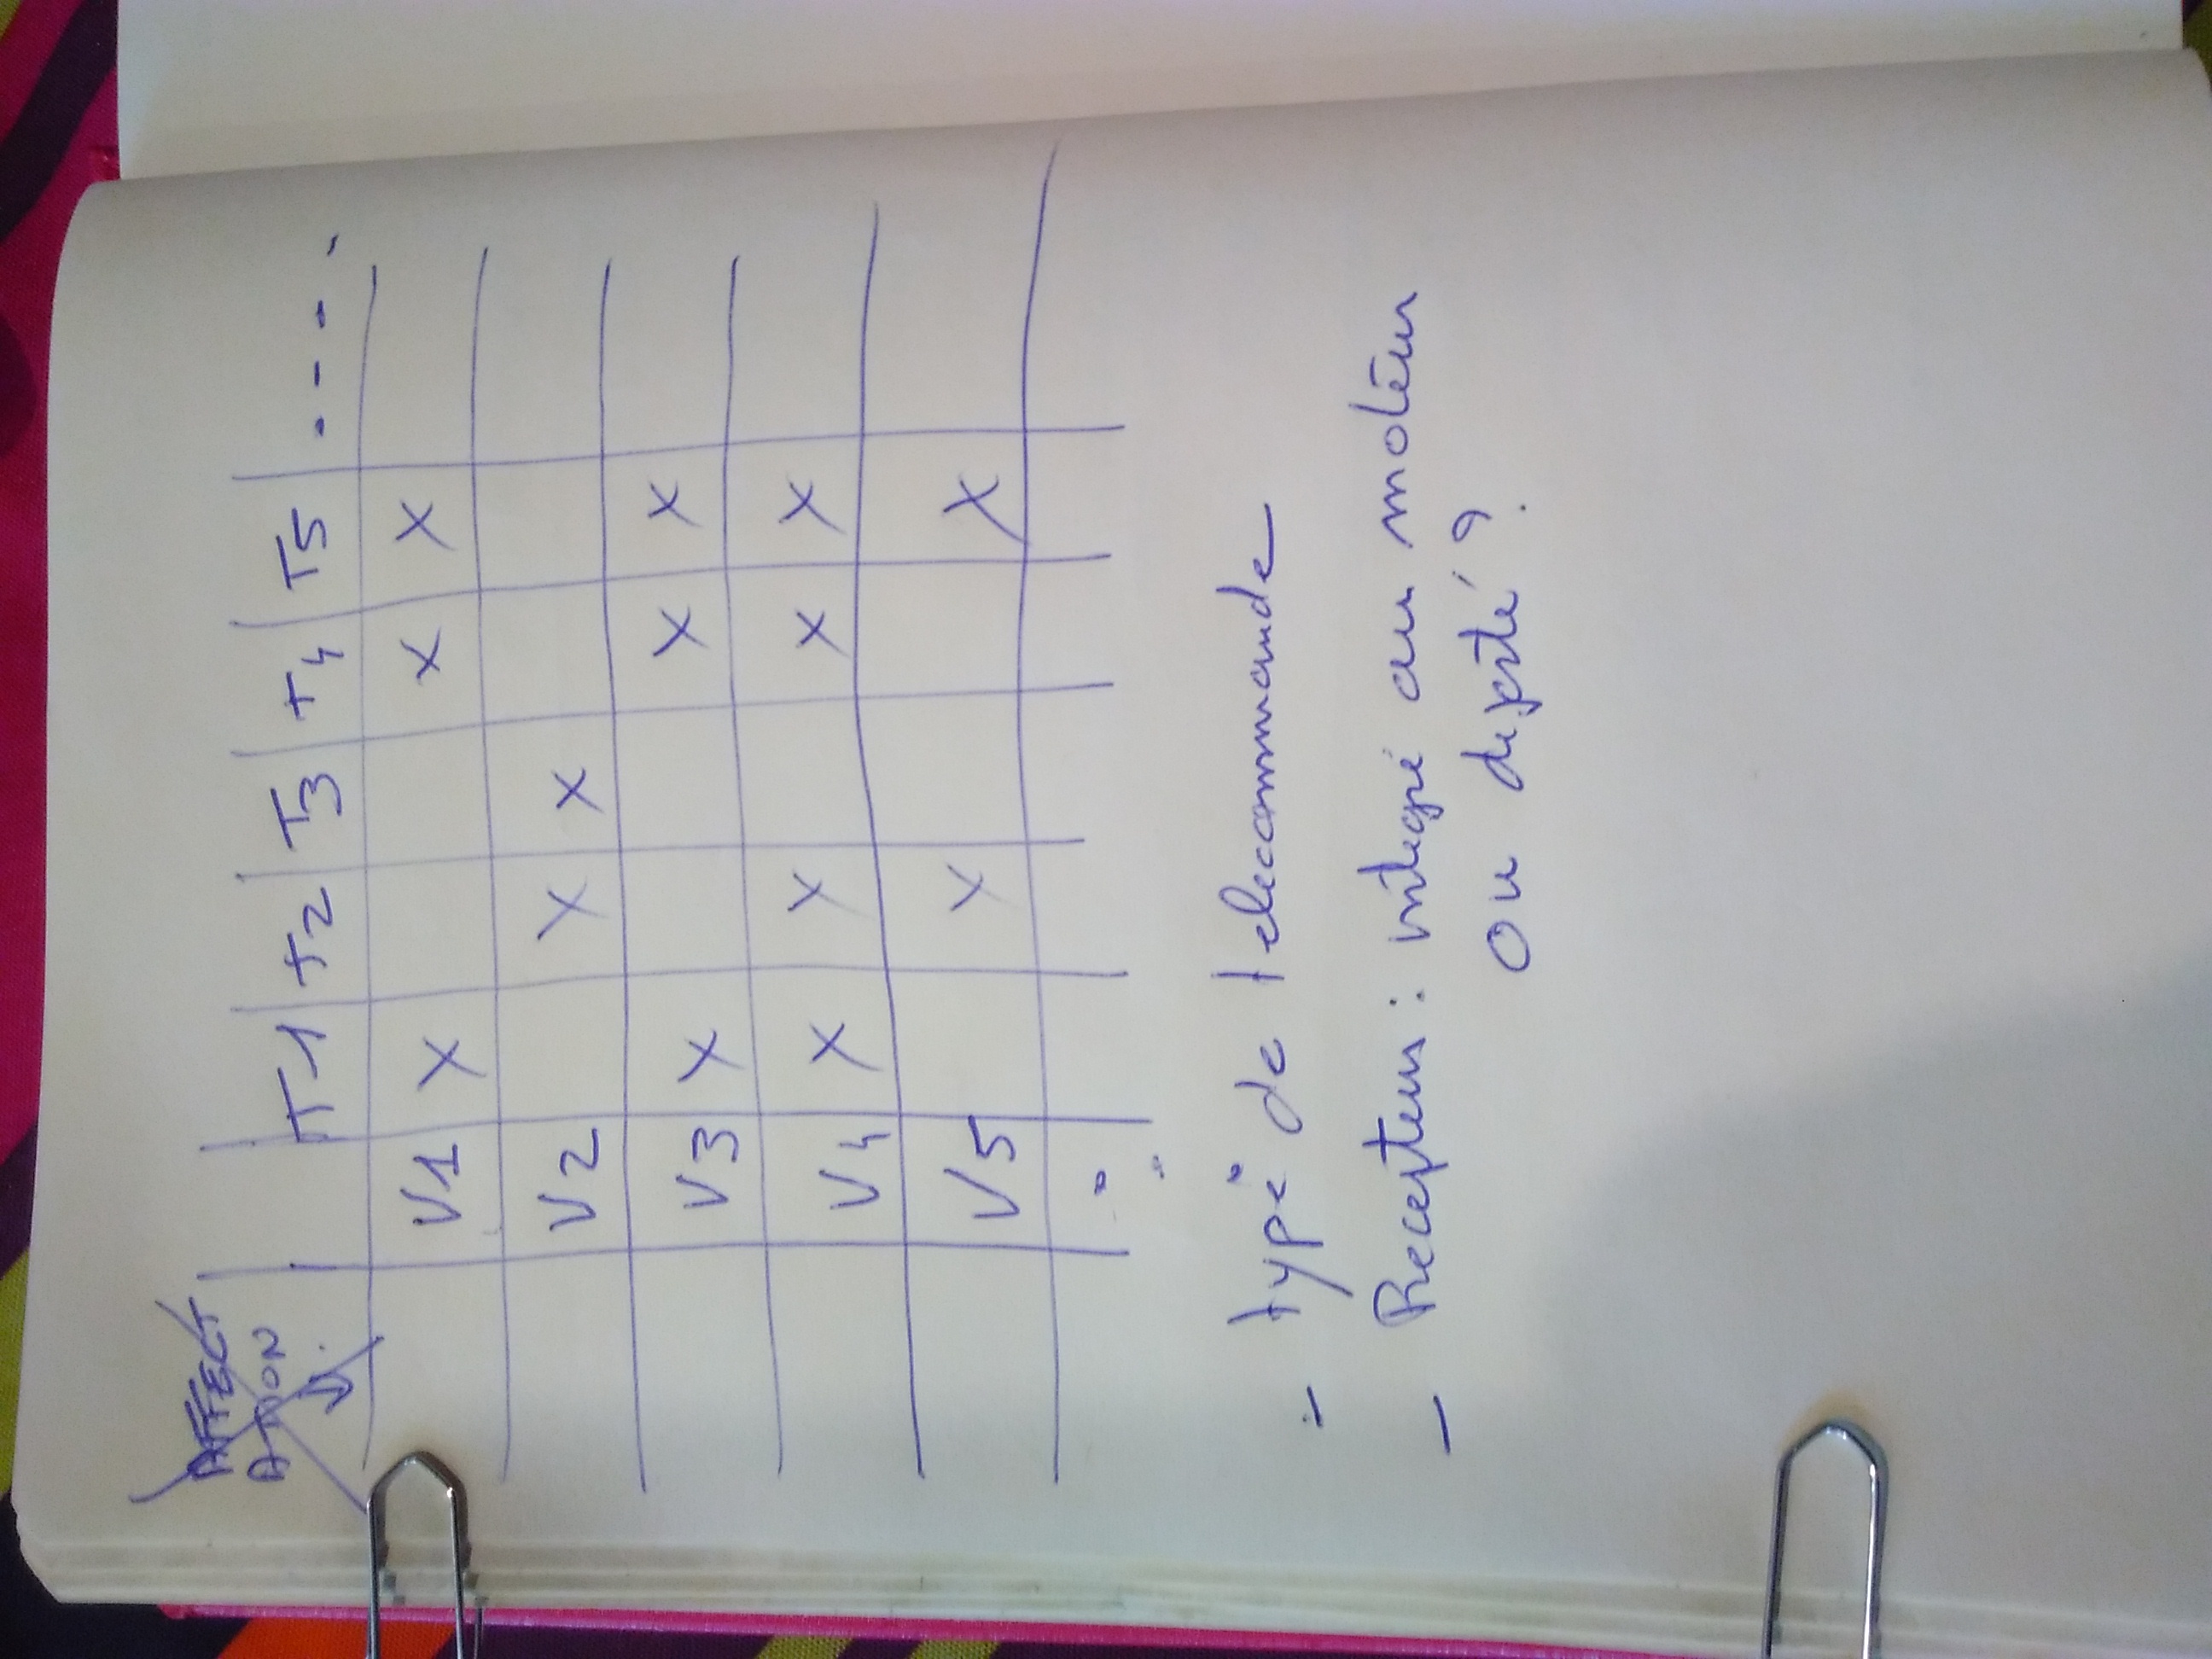 AFFECT
ATION
T1 T2 T3 T4 T5 ....
V1 X X X
V2 X X
V3 X X X
V4 X X X X
V5 X X
- type de telecommande
- Recepteur : intégré au moteur
ou deporté ?